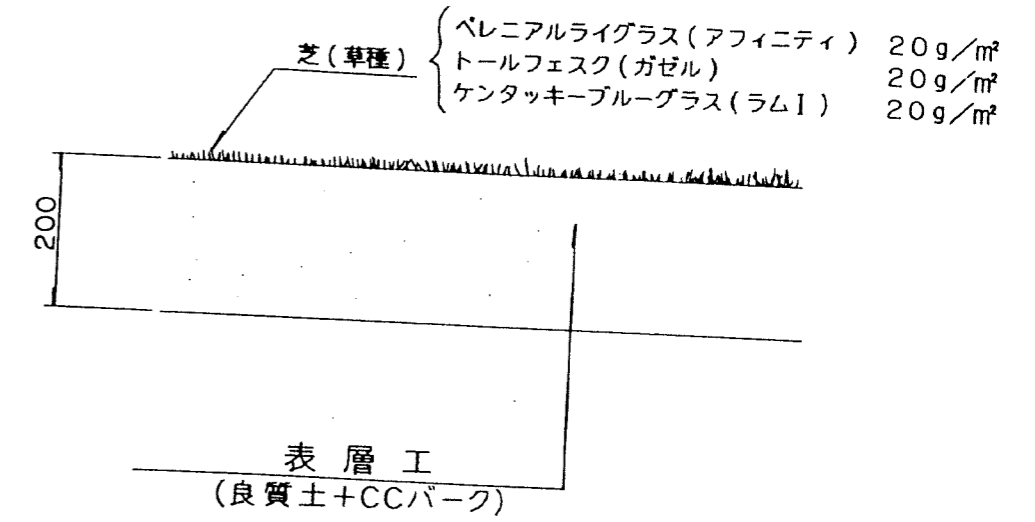 ペレニアルライグラス(アフィニティ) 20g/㎡
芝(草種)
トールフェスク(ガゼル) 20g/㎡
ケンタッキーブルーグラス(ラムI) 20g/㎡
200
表層工
(良質土+CCバーク)